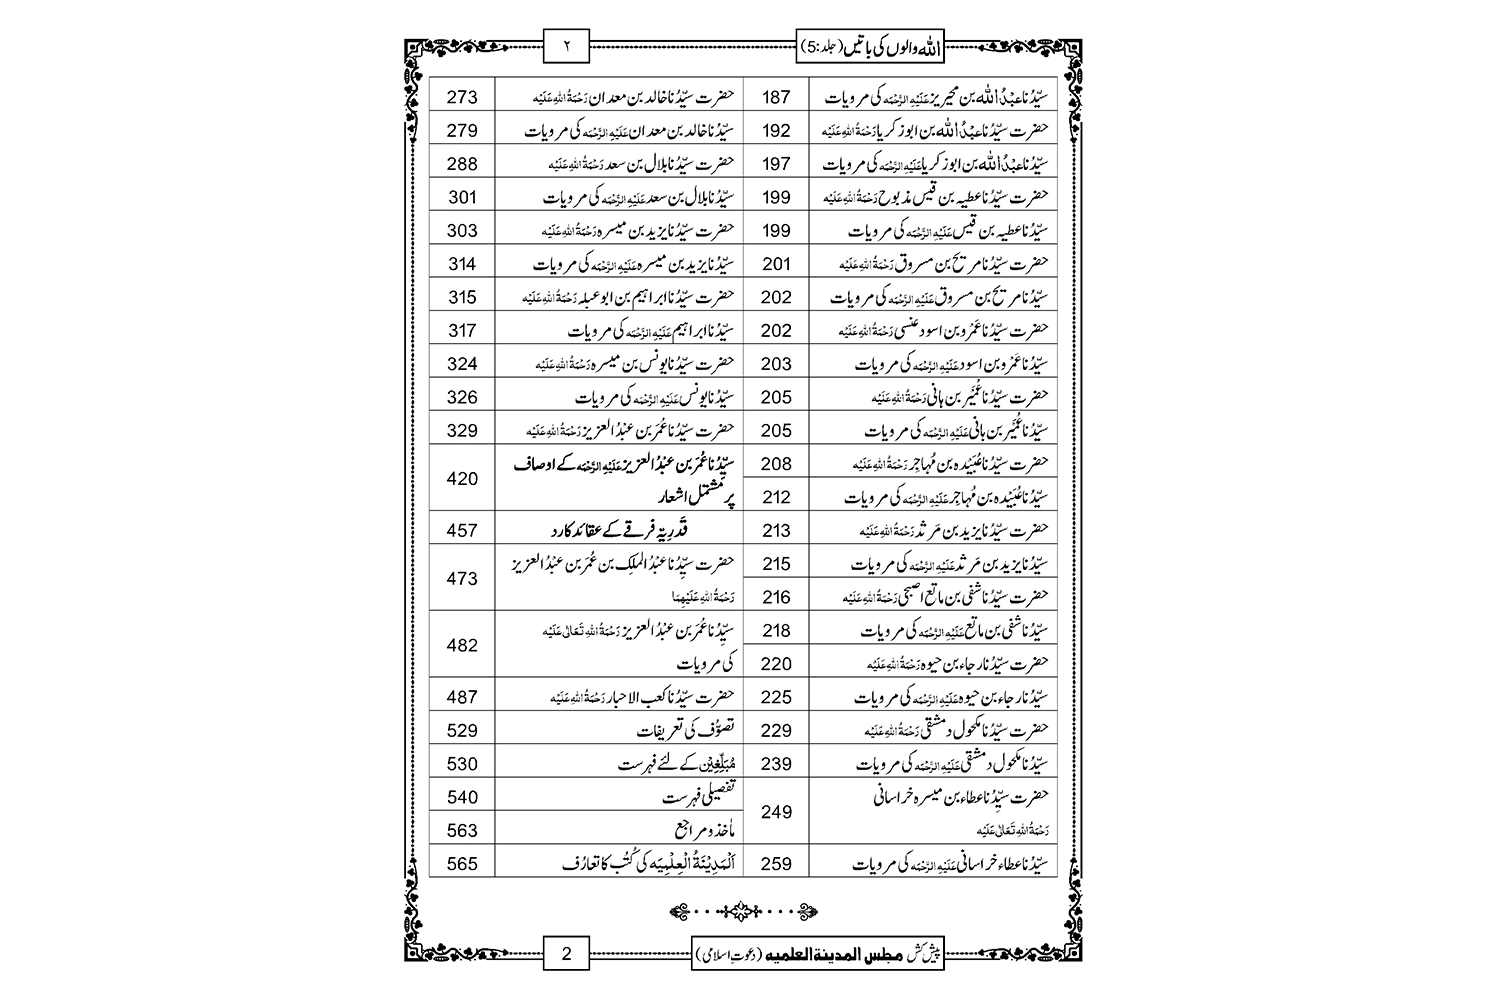 اللہ والوں کی باتیں (جلد:5)
۲
سیِّدُنا عبْدُ اللہ بن محیریز عَلَیْہِ الرَّحْمَہ کی مرویات 187
حضرت سیِّدُنا عبْدُ اللہ بن ابو زکریا رَحْمَۃُ اللہِ عَلَیْہ 192
سیِّدُنا عبْدُ اللہ بن ابو زکریا عَلَیْہِ الرَّحْمَہ کی مرویات 197
حضرت سیِّدُنا عطیہ بن قیس مذبوح رَحْمَۃُ اللہِ عَلَیْہ 199
سیِّدُنا عطیہ بن قیس عَلَیْہِ الرَّحْمَہ کی مرویات 199
حضرت سیِّدُنا مریح بن مسروق رَحْمَۃُ اللہِ عَلَیْہ 201
سیِّدُنا مریح بن مسروق عَلَیْہِ الرَّحْمَہ کی مرویات 202
حضرت سیِّدُنا عَمْرو بن اسود عنسی رَحْمَۃُ اللہِ عَلَیْہ 202
سیِّدُنا عَمْرو بن اسود عَلَیْہِ الرَّحْمَہ کی مرویات 203
حضرت سیِّدُنا عُمَیْر بن ہانی رَحْمَۃُ اللہِ عَلَیْہ 205
سیِّدُنا عُمَیْر بن ہانی عَلَیْہِ الرَّحْمَہ کی مرویات 205
حضرت سیِّدُنا عُبَیْدہ بن مُہاجِر رَحْمَۃُ اللہِ عَلَیْہ 208
سیِّدُنا عُبَیْدہ بن مُہاجِر عَلَیْہِ الرَّحْمَہ کی مرویات 212
حضرت سیِّدُنا یزید بن مَرثد رَحْمَۃُ اللہِ عَلَیْہ 213
سیِّدُنا یزید بن مَرثد عَلَیْہِ الرَّحْمَہ کی مرویات 215
حضرت سیِّدُنا شفی بن ماتع اصبحی رَحْمَۃُ اللہِ عَلَیْہ 216
سیِّدُنا شفی بن ماتع عَلَیْہِ الرَّحْمَہ کی مرویات 218
حضرت سیِّدُنا رجاء بن حیوہ رَحْمَۃُ اللہِ عَلَیْہ 220
سیِّدُنا رجاء بن حیوہ عَلَیْہِ الرَّحْمَہ کی مرویات 225
حضرت سیِّدُنا مکحول دمشقی رَحْمَۃُ اللہِ عَلَیْہ 229
سیِّدُنا مکحول دمشقی عَلَیْہِ الرَّحْمَہ کی مرویات 239
حضرت سیِّدُنا عطاء بن میسرہ خراسانی
رَحْمَۃُ اللہِ تَعَالٰی عَلَیْہ 249
سیِّدُنا عطاء خراسانی عَلَیْہِ الرَّحْمَہ کی مرویات 259
حضرت سیِّدُنا خالد بن معدان رَحْمَۃُ اللہِ عَلَیْہ 273
سیِّدُنا خالد بن معدان عَلَیْہِ الرَّحْمَہ کی مرویات 279
حضرت سیِّدُنا بلال بن سعد رَحْمَۃُ اللہِ عَلَیْہ 288
سیِّدُنا بلال بن سعد عَلَیْہِ الرَّحْمَہ کی مرویات 301
حضرت سیِّدُنا یزید بن میسرہ رَحْمَۃُ اللہِ عَلَیْہ 303
سیِّدُنا یزید بن میسرہ عَلَیْہِ الرَّحْمَہ کی مرویات 314
حضرت سیِّدُنا ابراہیم بن ابو عبلہ رَحْمَۃُ اللہِ عَلَیْہ 315
سیِّدُنا ابراہیم عَلَیْہِ الرَّحْمَہ کی مرویات 317
حضرت سیِّدُنا یونس بن میسرہ رَحْمَۃُ اللہِ عَلَیْہ 324
سیِّدُنا یونس عَلَیْہِ الرَّحْمَہ کی مرویات 326
حضرت سیِّدُنا عُمَر بن عبْدُ العزیز رَحْمَۃُ اللہِ عَلَیْہ 329
سیِّدُنا عُمَر بن عبْدُ العزیز عَلَیْہِ الرَّحْمَہ کے اوصاف
پر مشتمل اشعار 420
قَدَرِیَّہ فرقے کے عقائد کا رد 457
حضرت سیِّدُنا عبْدُ الملِک بن عُمَر بن عبْدُ العزیز
رَحْمَۃُ اللہِ عَلَیْہِمَا 473
سیِّدُنا عُمَر بن عبْدُ العزیز رَحْمَۃُ اللہِ تَعَالٰی عَلَیْہ
کی مرویات 482
حضرت سیِّدُنا کعب الاحبار رَحْمَۃُ اللہِ عَلَیْہ 487
تصوُّف کی تعریفات 529
مُبَلِّغِیْن کے لئے فہرست 530
تفصیلی فہرست 540
ماٰخذ و مراجع 563
اَلْمَدِیْنَۃُ الْعِلْمِیَہ کی کُتُب کا تعارُف 565
پیش کش مجلس المدینۃ العلمیہ (دعوتِ اسلامی)
2